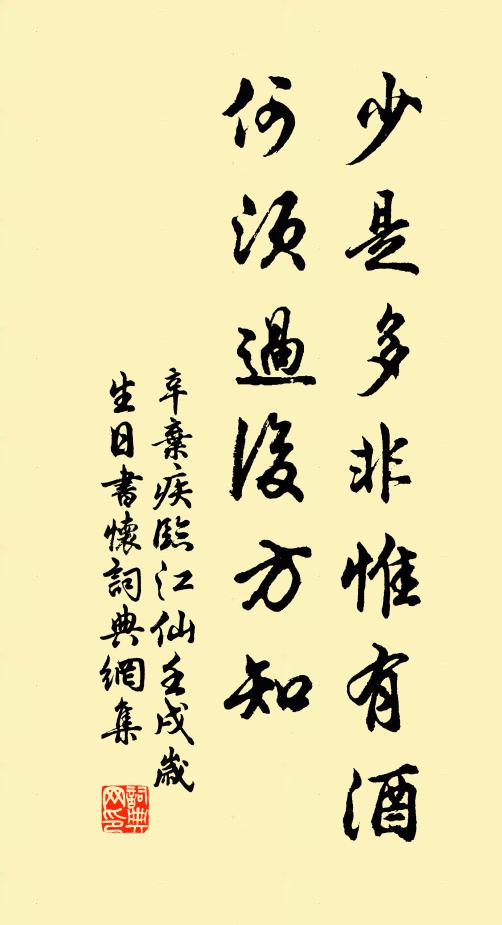 少是多非惟有酒
何須過後方知
辛棄疾臨江仙壬戌歲
生日書懷詞典網集
詞典
网印